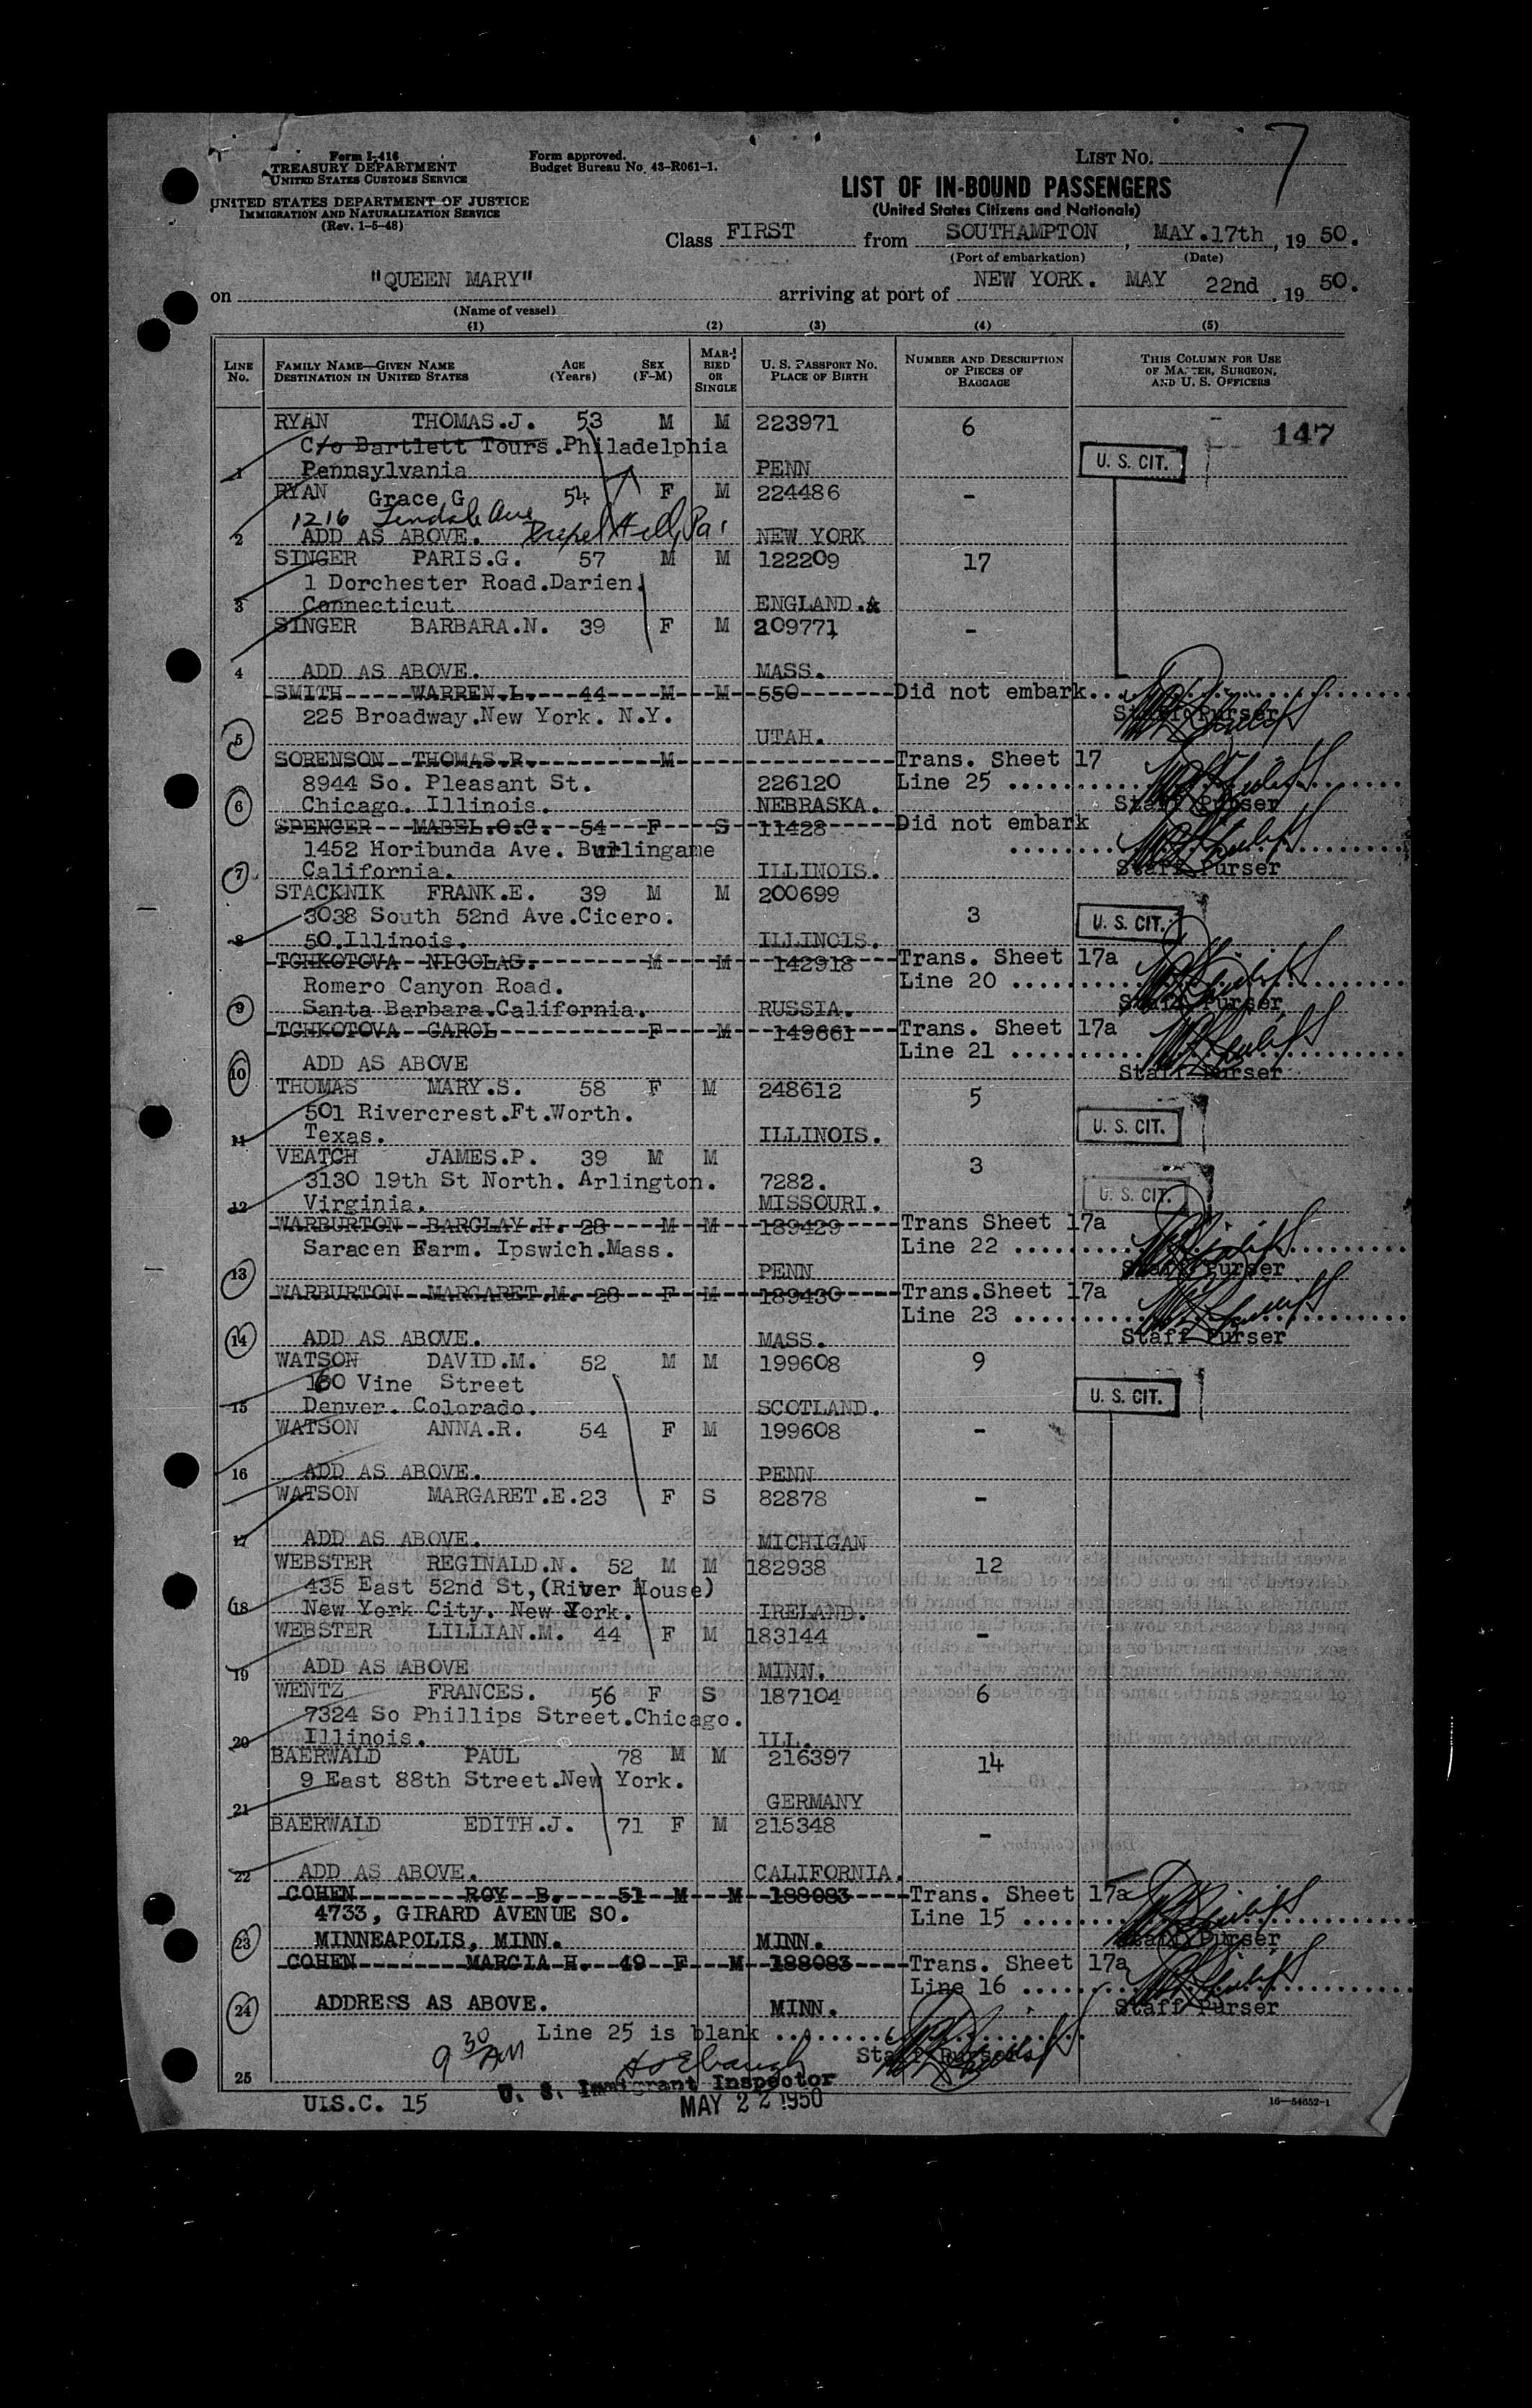 7
Form I-416
TREASURY DEPARTMENT
UNITED STATES CUSTOMS SERVICE
UNITED STATES DEPARTMENT OF JUSTICE
IMMIGRATION AND NATURALIZATION SERVICE
(Rev. 1-5-48)
Form approved.
Budget Bureau No. 43-R061-1.
LIST No.
LIST OF IN-BOUND PASSENGERS
(United States Citizens and Nationals)
Class FIRST from SOUTHAMPTON, MAY.17th, 19 50.
(Port of embarkation) (Date)
on "QUEEN MARY" arriving at port of NEW YORK. MAY 22nd, 19 50.
(Name of vessel)
(1) (2) (3) (4) (5)
LINE No. FAMILY NAME—GIVEN NAME DESTINATION IN UNITED STATES AGE (Years) SEX (F-M) MARRIED OR SINGLE U. S. PASSPORT NO. PLACE OF BIRTH NUMBER AND DESCRIPTION OF PIECES OF BAGGAGE THIS COLUMN FOR USE OF MASTER, SURGEON, AND U. S. OFFICERS
RYAN THOMAS.J. 53 M M 223971 6 147
C/o Bartlett Tours.Philadelphia U. S. CIT.
1 Pennsylvania PENN
RYAN Grace G 54 F M 224486 -
1216 Ave Drexel Hill Pa
2 ADD AS ABOVE. NEW YORK
SINGER PARIS.G. 57 M M 122209 17
1 Dorchester Road.Darien.
3 Connecticut ENGLAND.
SINGER BARBARA.N. 39 F M 209771 -
4 ADD AS ABOVE. MASS.
SMITH WARREN.L. 44 M M 550 Did not embark.
225 Broadway.New York. N.Y. Staff Purser
5 UTAH.
SORENSON THOMAS.R. M Trans. Sheet 17
8944 So. Pleasant St. 226120 Line 25
6 Chicago. Illinois. NEBRASKA. Staff Purser
SPENGER MABEL.O.C. 54 F S 11428 Did not embark
1452 Horibunda Ave. Burlingame
7 California. ILLINOIS. Staff Purser
STACKNIK FRANK.E. 39 M M 200699
3038 South 52nd Ave.Cicero. 3 U. S. CIT.
8 50.Illinois. ILLINOIS.
TCHKOTOVA NICOLAS. M M 142918 Trans. Sheet 17a
Romero Canyon Road. Line 20
9 Santa Barbara.California. RUSSIA. Staff Purser
TCHKOTOVA CAROL F M 149661 Trans. Sheet 17a
Line 21
10 ADD AS ABOVE Staff Purser
THOMAS MARY.S. 58 F M 248612 5
501 Rivercrest.Ft.Worth. U. S. CIT.
11 Texas. ILLINOIS.
VEATCH JAMES.P. 39 M M 3
3130 19th St North. Arlington. 7282. U. S. CIT.
12 Virginia. MISSOURI.
WARBURTON BARCLAY.H. 28 M M 189429 Trans Sheet 17a
Saracen Farm. Ipswich.Mass. Line 22
13 PENN Staff Purser
WARBURTON MARGARET.M. 28 F M 189430 Trans.Sheet 17a
Line 23
14 ADD AS ABOVE. MASS. Staff Purser
WATSON DAVID.M. 52 M M 199608 9
160 Vine Street U. S. CIT.
15 Denver. Colorado. SCOTLAND.
WATSON ANNA.R. 54 F M 199608 -
16 ADD AS ABOVE. PENN
WATSON MARGARET.E.23 F S 82878 -
17 ADD AS ABOVE. MICHIGAN
WEBSTER REGINALD.N. 52 M M 182938 12
435 East 52nd St,(River House)
18 New York City. New York. IRELAND.
WEBSTER LILLIAN.M. 44 F M 183144 -
19 ADD AS ABOVE MINN.
WENTZ FRANCES. 56 F S 187104 6
7324 So Phillips Street.Chicago.
20 Illinois. ILL.
BAERWALD PAUL 78 M M 216397 14
9 East 88th Street.New York.
21 GERMANY
BAERWALD EDITH.J. 71 F M 215348 -
22 ADD AS ABOVE. CALIFORNIA.
COHEN ROY B. 51 M M 188083 Trans. Sheet 17a
4733, GIRARD AVENUE SO. Line 15
23 MINNEAPOLIS, MINN. MINN. Staff Purser
COHEN MARCIA H. 49 F M 188083 Trans. Sheet 17a
Line 16
24 ADDRESS AS ABOVE. MINN. Staff Purser
Line 25 is blank
9 30 AM Staff Purser
25 U. S. Immigrant Inspector
U.S.C. 15 MAY 22 1950 16—54652-1